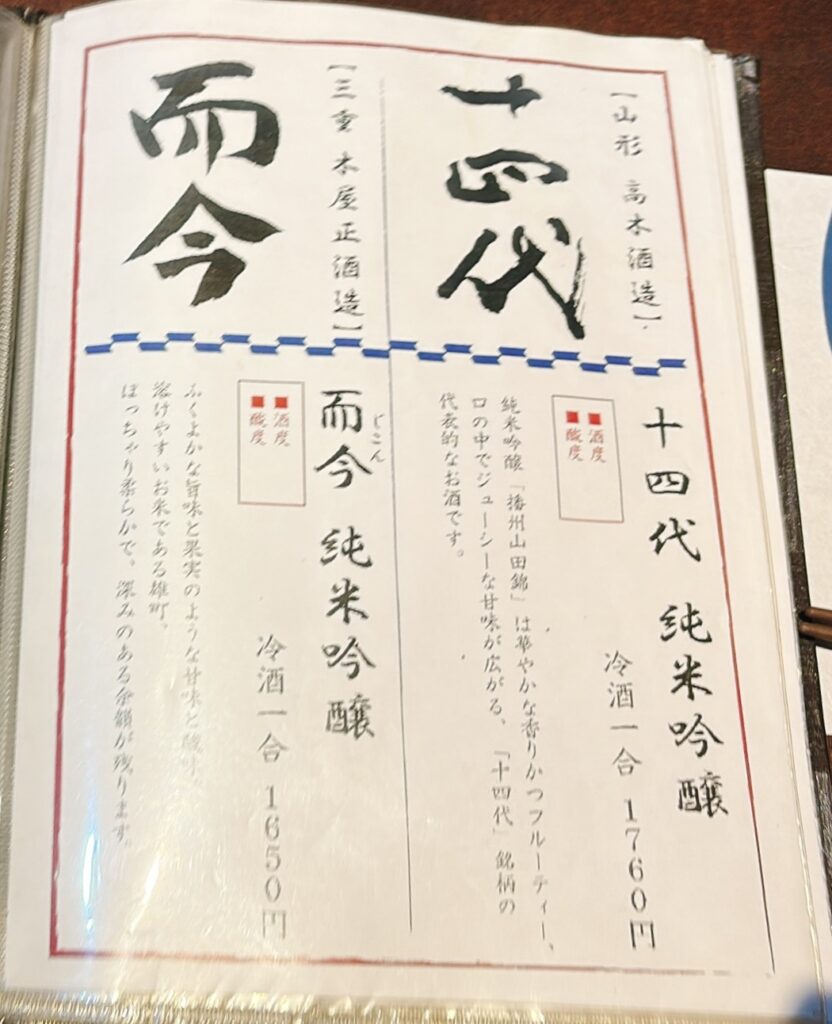 十四代
【山形 高木酒造】
十四代 純米吟醸
■酒度
■酸度
冷酒一合 1760円
純米吟醸「播州山田錦」は華やかな香りかつフルーティー、
口の中でジューシーな甘味が広がる、「十四代」銘柄の
代表的なお酒です。
而今
【三重 木屋正酒造】
じこん
而今 純米吟醸
■酒度
■酸度
冷酒一合 1650円
ふくよかな旨味と果実のような甘味と酸味、
溶けやすいお米である雄町、
ぽっちゃり柔らかで、深みのある余韻が残ります。